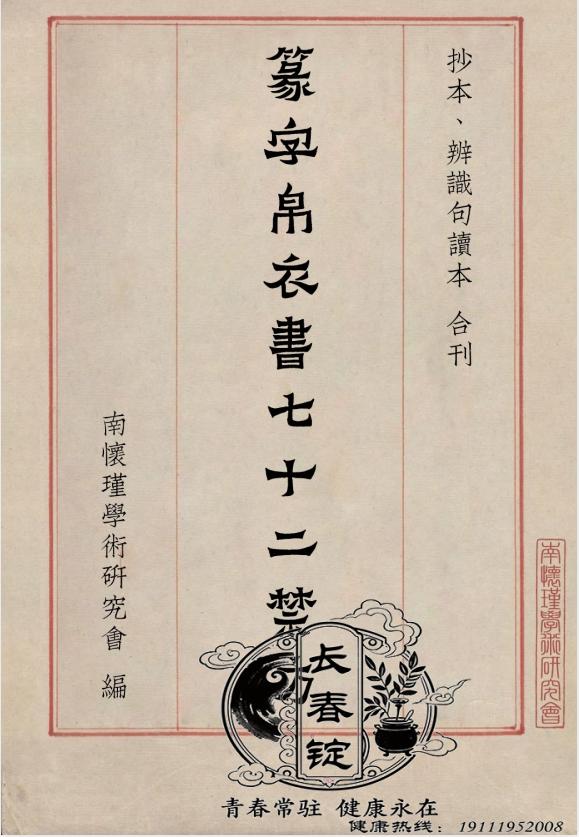 抄本、辨識句讀本 合刊
篆字帛衣書七十二禁
南懷瑾學術研究會 編
南懷瑾學術研究會
长春锭
青春常驻 健康永在
健康热线：19111952008